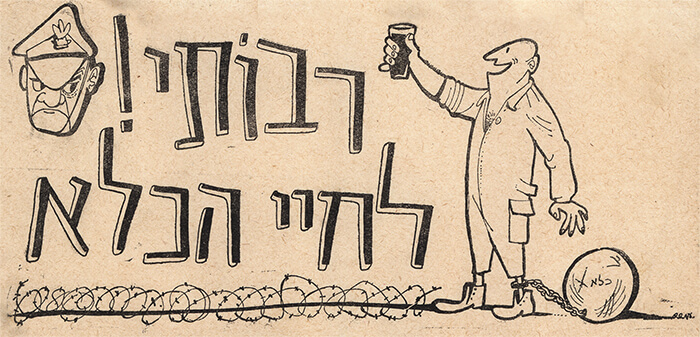 רבותי!
לחיי הכלא
כלא